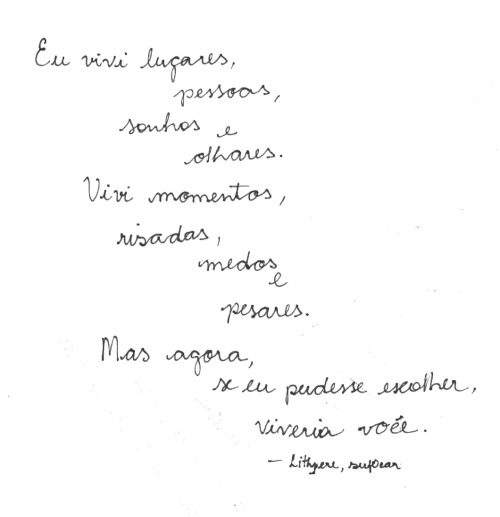 Eu vivi lugares,
pessoas,
sonhos e
olhares.
Vivi momentos,
risadas,
medos
e
pesares.
Mas agora,
se eu pudesse escolher,
viveria você.